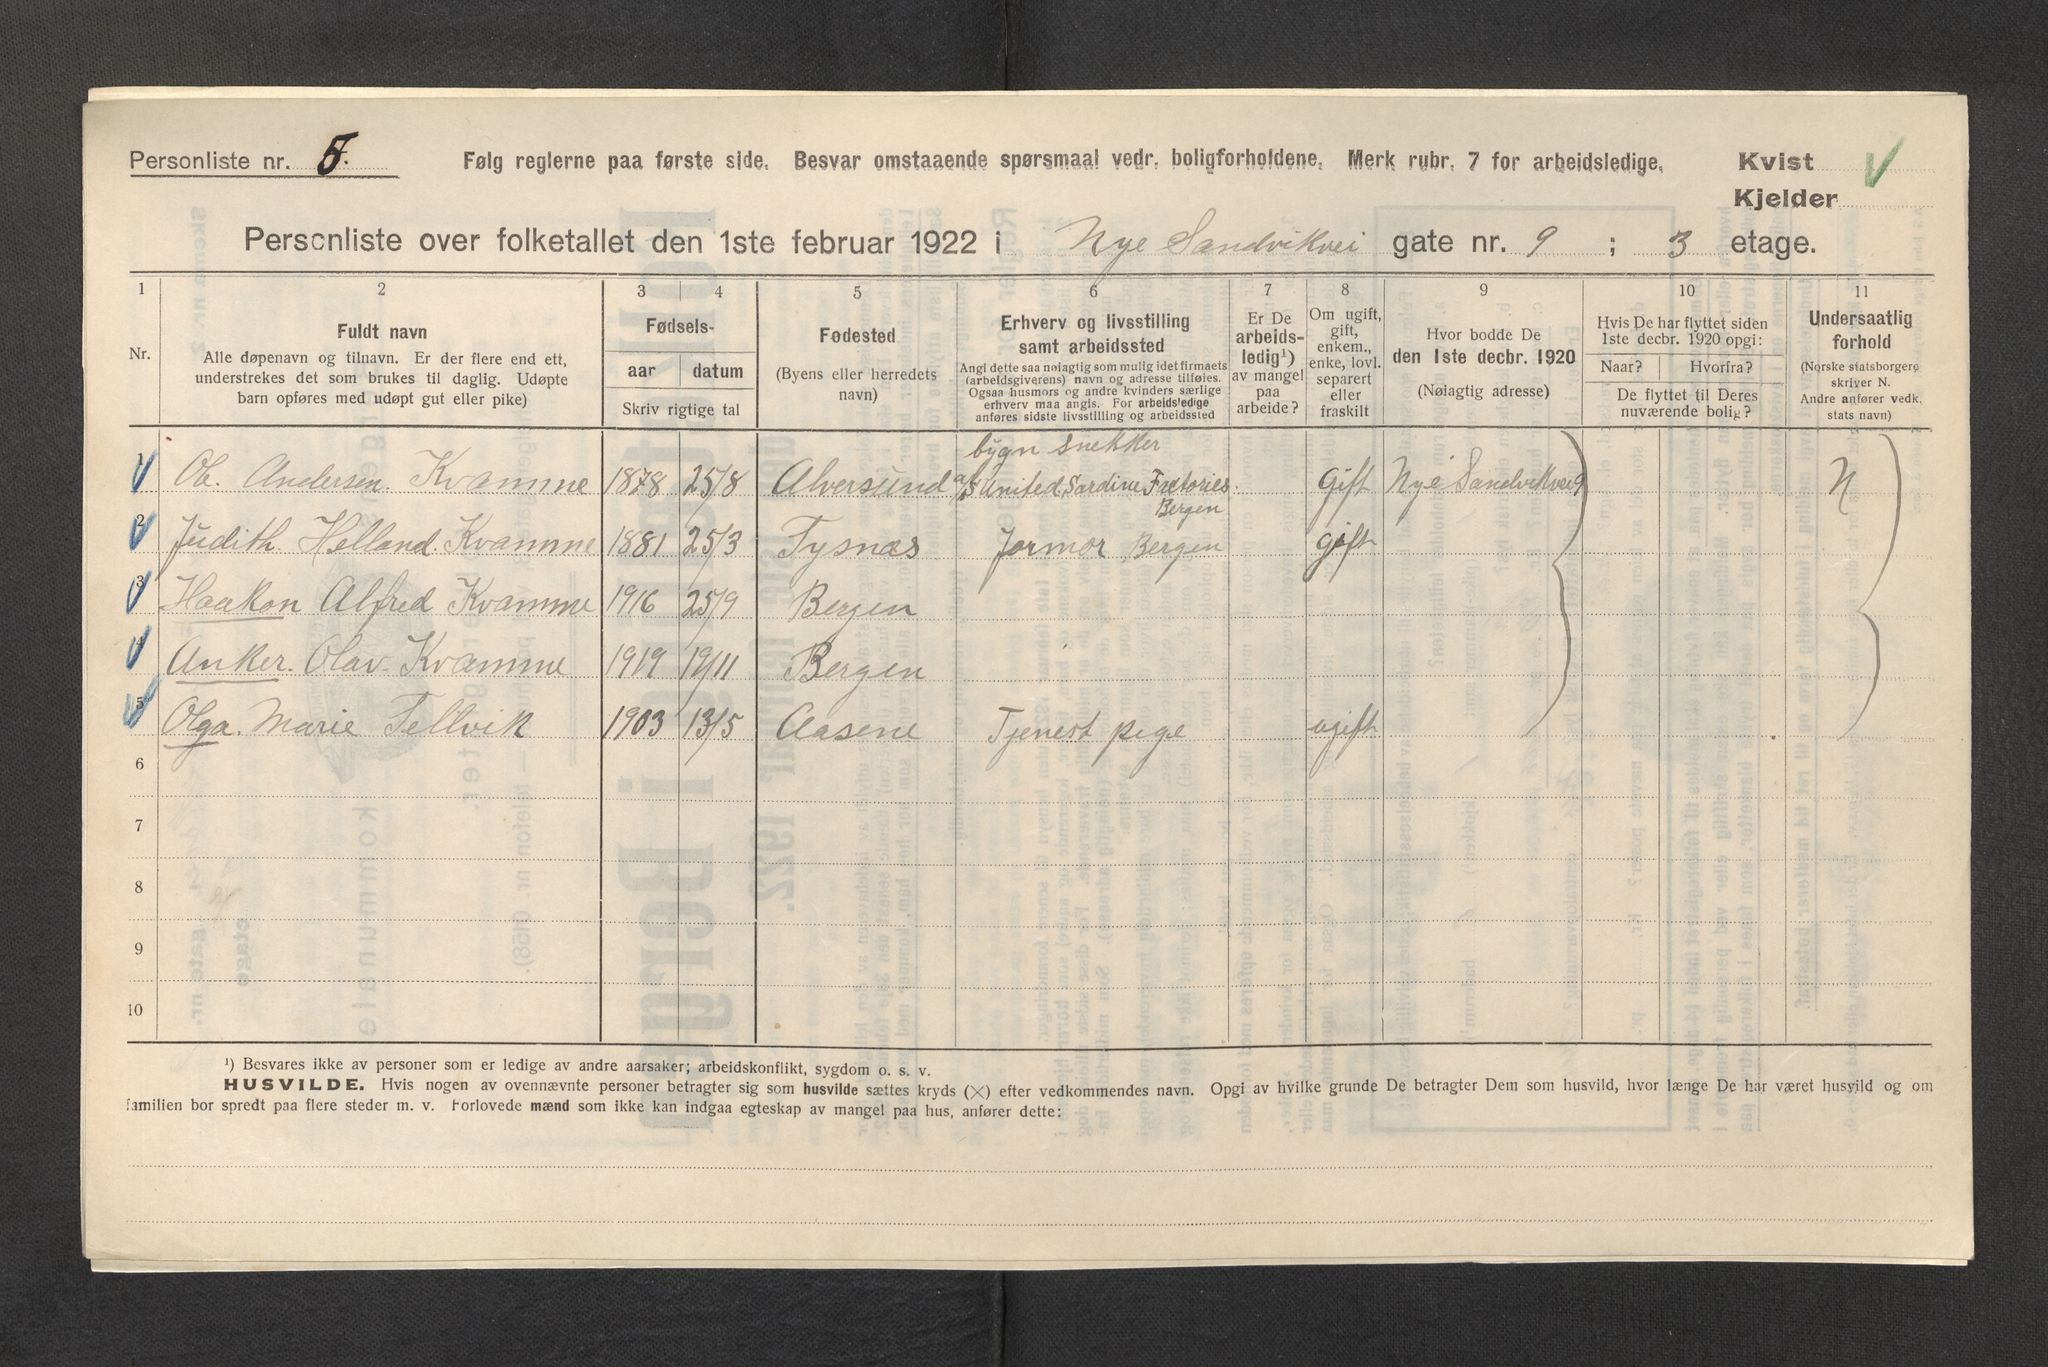 Personliste nr. 5. Følg reglerne paa første side. Besvar omstaaende spørsmaal vedr. boligforholdene. Merk rubr. 7 for arbeidsledige. Kvist
Kjelder
Personliste over folketallet den 1ste februar 1922 i Nye Sandvikvei gate nr. 9 ; 3 etage.
1 2 3 4 5 6 7 8 9 10 11
Nr.
Fuldt navn
Alle døpenavn og tilnavn. Er der flere end ett,
understrekes det som brukes til daglig. Udøpte
barn opføres med udøpt gut eller pike)
Fødsels-
aar datum
Skriv rigtige tal
Fødested
(Byens eller herredets
navn)
Erhverv og livsstilling
samt arbeidssted
Angi dette saa nøiagtig som mulig idet firmaets
(arbeidsgiverens) navn og adresse tilføies.
Ogsaa husmors og andre kvinders særlige
erhverv maa angis. For arbeidsledige
anføres sidste livsstilling og arbeidssted
Er De
arbeids-
ledig¹)
av mangel
paa
arbeide?
Om ugift,
gift,
enkem.,
enke, lovl.
separert
eller
fraskilt
Hvor bodde De
den 1ste decbr. 1920
(Nøiagtig adresse)
Hvis De har flyttet siden
1ste decbr. 1920 opgi:
Naar? Hvorfra?
De flyttet til Deres
nuværende bolig?
Undersaatlig
forhold
(Norske statsborgere
skriver N.
Andre anfører vedk.
stats navn)
bygn snekker
1 Ol. Andersen. Kvamme 1878 25/8 Alversund a/s United Sardine Factories. gift Nye Sandvikvei 9 N
Bergen
2 Judith Helland Kvamme 1881 25/3 Tysnæs Jormor Bergen gift
3 Haakon Alfred Kvamme 1916 25/9 Bergen
4 Anker. Olav. Kvamme 1919 19/11 Bergen
5 Olga. Marie Tellvik 1903 13/5 Aasene Tjenest pige ugift
6
7
8
9
10
¹) Besvares ikke av personer som er ledige av andre aarsaker; arbeidskonflikt, sygdom o. s. v.
HUSVILDE. Hvis nogen av ovennævnte personer betragter sig som husvilde sættes kryds (×) efter vedkommendes navn. Opgi av hvilke grunde De betragter Dem som husvild, hvor længe De har været husvild og om
familien bor spredt paa flere steder m. v. Forlovede mænd som ikke kan indgaa egteskap av mangel paa hus, anfører dette: